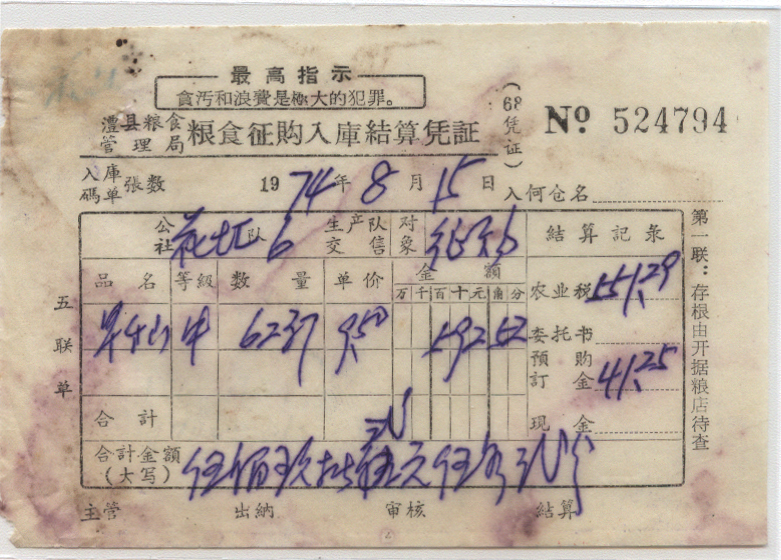 最高指示
貪汚和浪費是極大的犯罪。
澧县粮食管理局 粮食征购入库結算凭証 (68凭证) № 524794
入庫碼单 张数 1974年8月15日 入何仓名
公社 队 6 生产队 交售 对象 結算記录
品名 等級 数量 单价 金額 农业税 551.29
万千百十元角分
中 6237 9.50 592 52 委托书
預購訂金 41.25
合計 現金
合計金額(大写) 伍佰玖拾 元伍角 分
主管 出納 审核 結算
五联单
第一联：存根由开据粮店待查